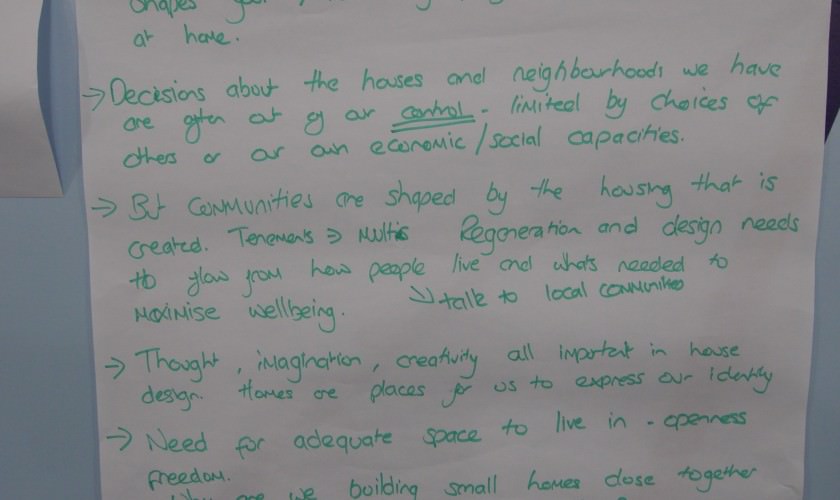 shapes
at home.
→ Decisions about the houses and neighbourhoods we have
are often out of our control - limited by choices of
others or our own economic / social capacities.
→ But communities are shaped by the housing that is
created. Tenements → Multis Regeneration and design needs
to flow from how people live and whats needed to
maximise wellbeing. ↘ talk to local communities
→ Thought, imagination, creativity all important in house
design. Homes are places for us to express our identity
→ Need for adequate space to live in - openness
freedom.
Why are we building small homes close together